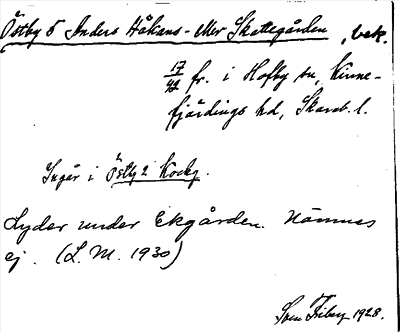 Östby 5 Anders Håkans- Mer Skattegården, bek.
17/48 fr. i Hofby sn, Kinne-
fjärdings hd, Skarab. l.
Ingår i Östby 2 Kockg.
Lyder under Ekgården. Nämnes
ej. (L. M. 1930)
Sven Friberg 1928.